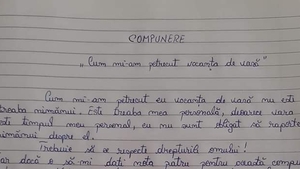 COMPUNERE
„Cum mi-am petrecut vacanța de vară"
Cum mi-am petrecut eu vacanța de vară nu este
treaba nimănui. Este treaba mea personală, deoarece vara
este timpul meu personal, eu nu sunt obligat să raportez
nimănui despre el!
Trebuie să se respecte drepturile omului!
Iar dacă o să-mi dați nota patru pentru această compu